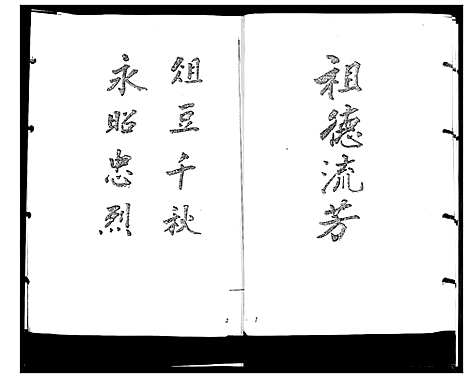 祖德流芳
俎豆千秋
永昭忠烈